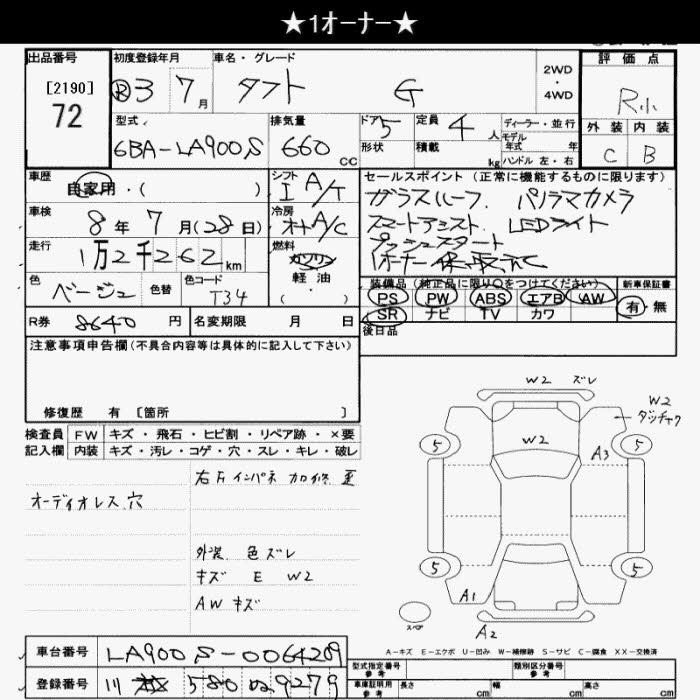 ★1オーナー★
出品番号
[2190]
72
初度登録年月
R3 7月
車名・グレード
タフト G
2WD
・
4WD
評価点
R小
外装 内装
C B
型式
6BA-LA900S
排気量
660 CC
ドア 5
形状
定員 4 人
積載 kg
ディーラー・並行
モデル
年式 年
ハンドル 左・右
車歴
自家用・( )
シフト
I A/T
車検
8年 7月(28日)
冷房
オートA/C
走行
1万2千262km
燃料
ガソリン
軽油
( ・ )
色
ベージュ
色替
色コード
T34
R券 8640円
名変期限 月 日
セールスポイント(正常に機能するものに限ります)
ガラスルーフ. パノラマカメラ
スマートアシスト. LEDライト
プッシュスタート
1オーナー
装備品(純正品に限り○をつけてください)
PS PW ABS エアB AW
SR ナビ TV カワ
新車保証書
有・無
後日品
注意事項申告欄(不具合内容等は具体的に記入して下さい)
修復歴 有 [箇所 ]
検査員 FW キズ・飛石・ヒビ割・リペア跡・×要
記入欄 内装 キズ・汚レ・コゲ・穴・スレ・キレ・破レ
オーディオレス穴
右Fインパネ加修歪
外装 色ズレ
キズ E W2
AWキズ
W2 ズレ
W2
W2
ダッチャク
A3
5
5
5
5
A1
A2
スペア
A－キズ E－エクボ U－凹み W－補修跡 S－サビ C－腐食 XX－交換済
車台番号 LA900S-0064289
登録番号 川越 580 ぬ 9279
型式指定番号
参考
類別区分番号
参考
車庫証明用
参考
長さ cm
幅 cm
高さ cm